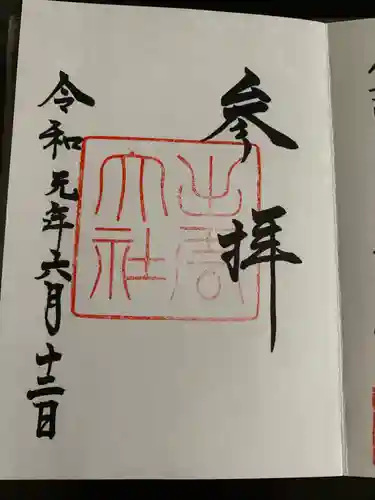 参拝
出雲
大社
令和元年六月十二日